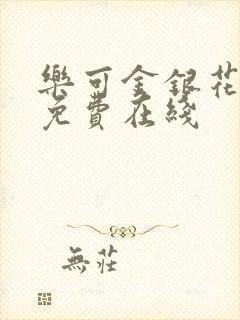 樂可金銀花
免費在綫
無莊